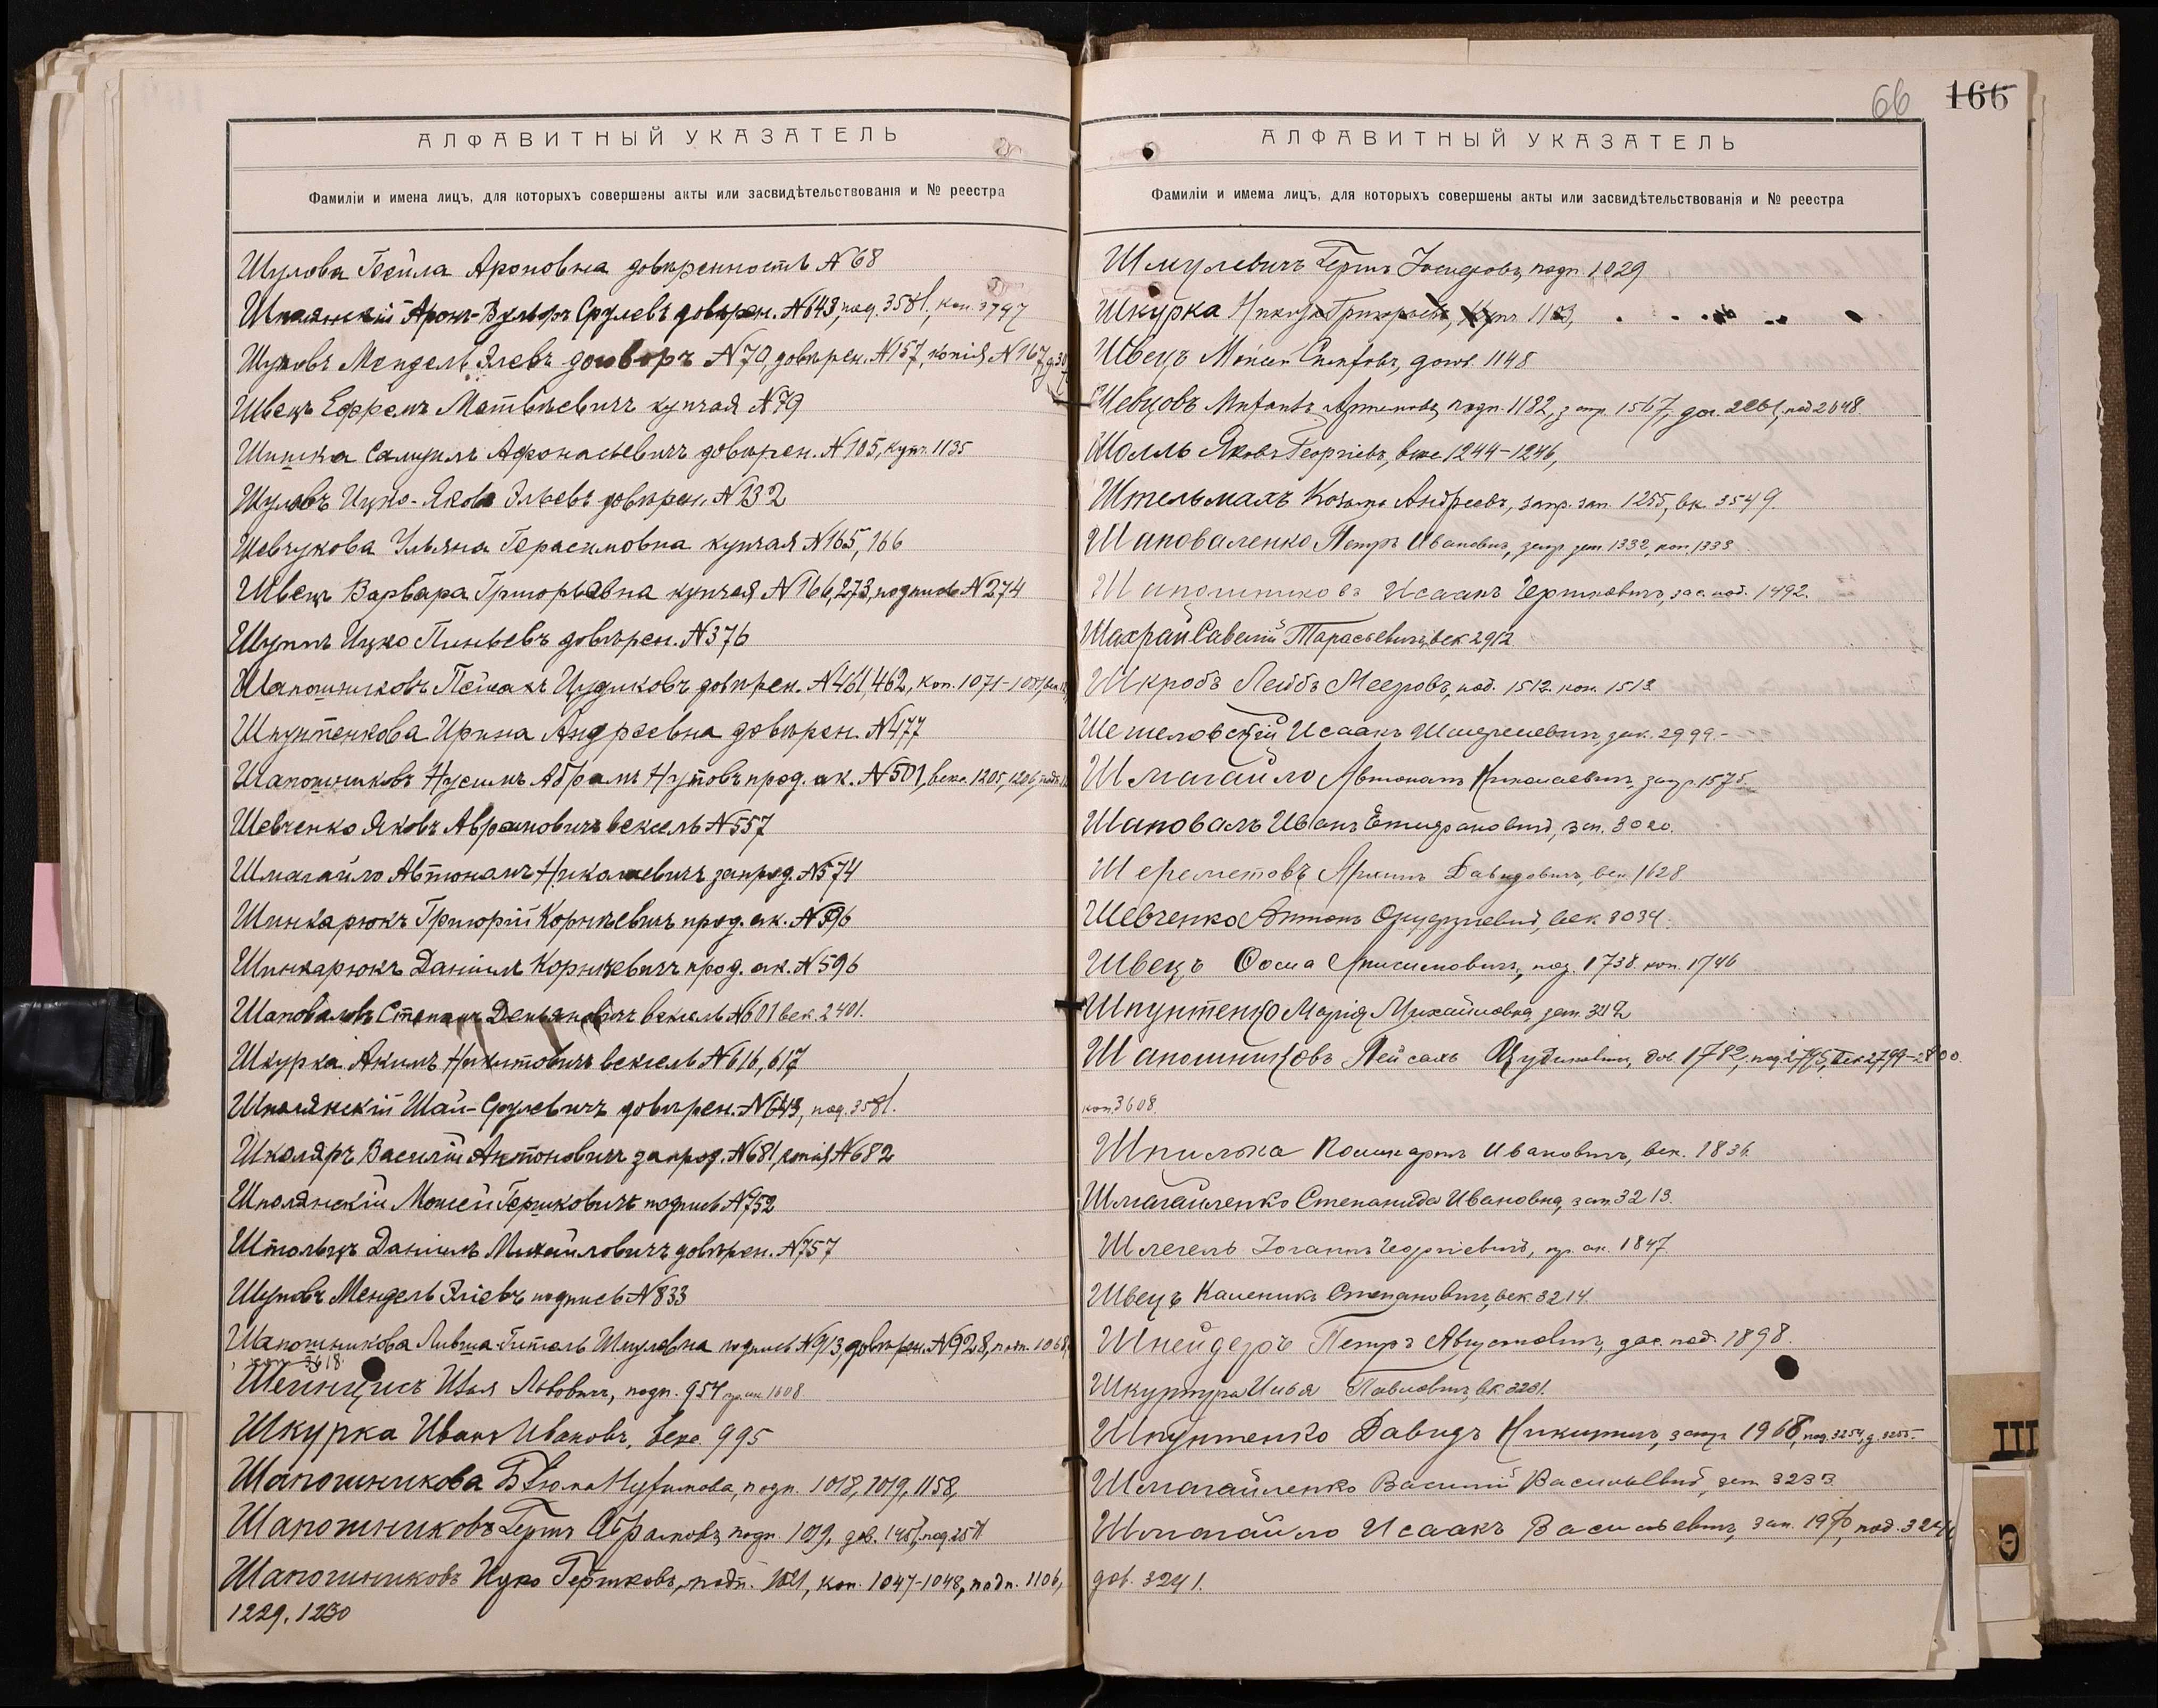 66 166
АЛФАВИТНЫЙ УКАЗАТЕЛЬ
Фамиліи и имена лицъ, для которыхъ совершены акты или засвидѣтельствованія и № реестра
Шулова Бейла Ароновна довѣренность №68
Шполянскій Аронъ-Вульфъ Срулевъ довѣрен. №643, под. 3581, коп. 3797
Шуповъ Мендель Элевъ договоръ №70, довѣрен. №157, копія №167
Швецъ Ефремъ Матвѣевичъ купчая №79
Шишка Самуилъ Афонасьевичъ довѣрен. №105, купч. 1135
Шуловъ Ицко-Яковъ Эльевъ довѣрен. №132
Шевчукова Ульяна Герасимовна купчая №165, 166
Швецъ Варвара Григорьевна купчая №166, 273, подпись №274
Шуппъ Ицко Пиньевъ довѣрен. №376
Шапошниковъ Пейсахъ Цудиковъ довѣрен. №461, 462, коп. 1071-1081
Шпунтенкова Ирина Андреевна довѣрен. №477
Шапошниковъ Нусимъ Абрамъ Нутовъ прод. ак. №501, векс. 1205, 1206
Шевченко Яковъ Аврамовичъ вексель №557
Шмагайло Автономъ Николаевичъ запрод. №574
Шинкарюкъ Григорій Корнѣевичъ прод. ак. №596
Шинкарюкъ Даніилъ Корнѣевичъ прод. ак. №596
Шаповаловъ Степанъ Демьяновичъ вексель №601 век. 2401.
Шкурка Акимъ Никитовичъ вексель №616, 617
Шполянскій Шай-Срулевичъ довѣрен. №643, под. 3581.
Школяръ Василій Антоновичъ запрод. №681, копія №682
Шполянскій Мошей Гершковичъ подпись №752
Штольцъ Даніилъ Михайловичъ довѣрен. №757
Шуповъ Мендель Эліевъ подпись №833
Шапошникова Ливша-Гитель Шмулевна подпись №913, довѣрен. №928, подп. 1068
3618.
Шейнцисъ Илья Львовичъ, подп. 954 1608
Шкурка Иванъ Ивановъ, векс. 995
Шапошникова Блюма Нухимова, подп. 1018, 1019, 1158,
Шапошниковъ Гершъ Абрамовъ, подп. 1019, дов. 1457, под. 2571
Шапошниковъ Ицко Гершковъ, подп. 1021, коп. 1047-1048, подп. 1106,
1229, 1230
АЛФАВИТНЫЙ УКАЗАТЕЛЬ
Фамиліи и имема лицъ, для которыхъ совершены акты или засвидѣтельствованія и № реестра
Шмулевичъ Гершъ Іосифовъ, подп. 1029
Шкурка Никита Григорьевъ, купч. 1103,
Швецъ Мойсей Іосифовъ, догов. 1148
Шевцовъ Артемовъ, подп. 1182, запр. 1567, дог. 2261, под 2648.
Шолль Яковъ Георгіевъ, векс 1244-1246,
Штельмахъ Козьма Андреевъ, запр. зап. 1255, вк. 3549.
Шаповаленко Петръ Ивановичъ, запр. зап. 1332, коп. 1333
Шапошниковъ Исаакъ Гершковичъ, зас. под. 1492.
Шахрай Савелій Тарасьевичъ, век 2912
Шкробъ Лейбъ Мееровъ, под. 1512. коп. 1513
Шешеловскій Исаакъ Шмерелевичъ, зак. 2999.-
Шмагайло Автономъ Николаевичъ, запр. 1575.
Шаповалъ Иванъ Епифановичъ, зап. 3020.
Шереметовъ Архипъ Давидовичъ, век. 1628
Шевченко Антонъ Онуфріевичъ, век. 3034.
Швецъ Ѳома Анисимовичъ, под. 1738. коп. 1746
Шпунтенко Марія Михайловна, зап. 3112
Шапошниковъ Пейсахъ Цудиковичъ, дов. 1782, под. 2795, век 2799-2800.
коп. 3608.
Шпилька Поликарпъ Ивановичъ, век. 1836.
Шмагайленко Степанида Ивановна, зап 3213.
Шлегель Іоганъ Георгіевичъ, пр. ак. 1847.
Швецъ Каленикъ Степановичъ, век. 3214.
Шнейдеръ Петръ Августовичъ, зас. под. 1898.
Шкуртура Илья Павловичъ, вк. 3231.
Шпунтенко Давидъ Никитичъ, запр. 1968, под. 3254, д. 3255.-
Шмагайленко Василій Васильевичъ, зап. 3233.
Шмагайло Исаакъ Васильевичъ, зап. 1970, под. 3241
дов. 3241.